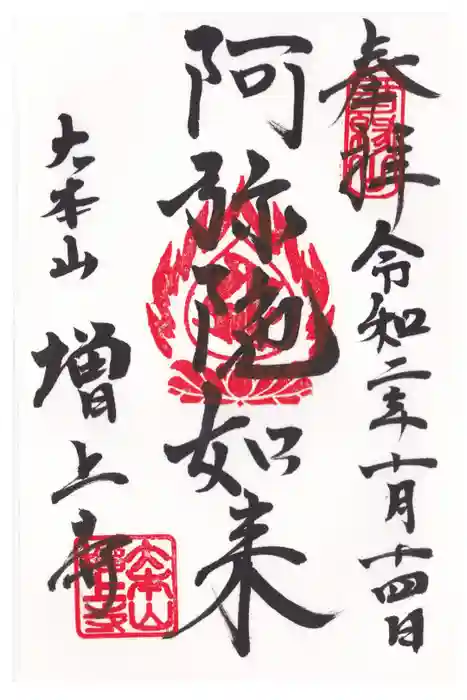 奉拝
令和二年十月十四日
阿弥陀如来
大本山
増上寺
大本山
増上寺